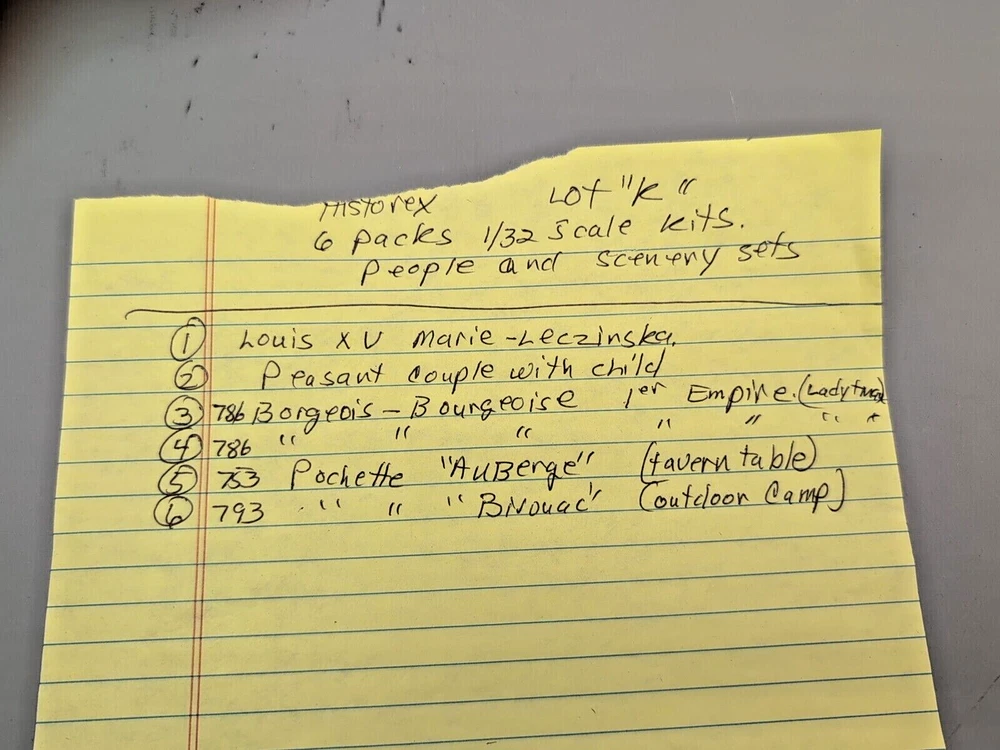 Historex Lot "K"
6 packs 1/32 scale kits.
people and scenery sets
① Louis XV Marie-Leczinska.
② Peasant couple with child
③ 786 Borgeois - Bourgeoise 1er Empire. (Lady+man)
④ 786 " " " " " " "
⑤ 753 Pochette "AuBerge" (tavern table)
⑥ 793 " " "Bivouac" (outdoor Camp)